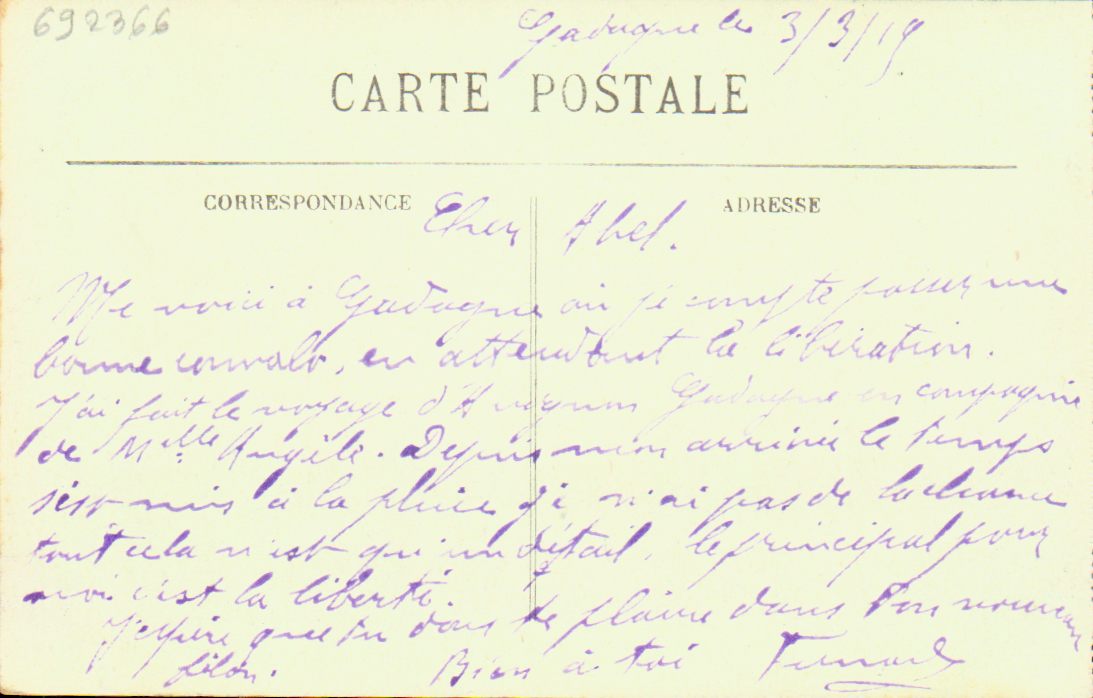 692366
Gadagne le 3/3/19
CARTE POSTALE
CORRESPONDANCE
ADRESSE
Cher Abel.
Me voici à Gadagne où je compte passer une
bonne convalo, en attendant la libération.
J'ai fait le voyage d'Avignon Gadagne en compagnie
de Melle Angèle. Depuis mon arrivée le temps
s'est mis à la pluie je n'ai pas de la chance
tout cela n'est qu'un détail, le principal pour
moi c'est la liberté.
J'espère que tu dois te plaire dans ton nouveau
filon. Bien à toi Fernand